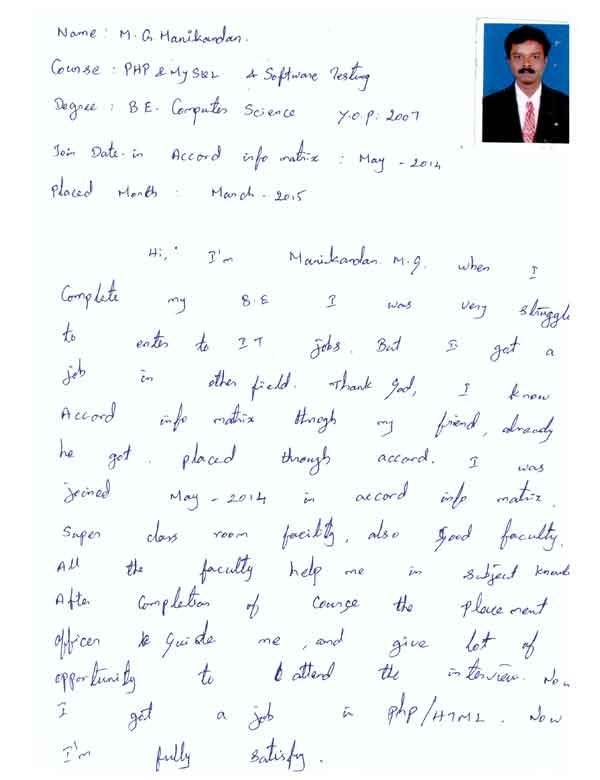 Name : M.G. Manikandan.
Course : PHP & MySQL & Software Testing
Degree : B.E. Computer Science Y.O.P: 2007
Join Date in Accord info matrix : May - 2014
Placed Month : March - 2015
Hi, I'm Manikandan. M.G. when I
Complete my B.E I was very struggle
to enter to IT jobs. But I got a
job in other field. Thank God, I know
Accord info matrix throgh my friend, already
he got placed through accord. I was
joined May - 2014 in accord info matrix.
Super class room facility, also good faculty.
All the faculty help me in subject
After Completion of Course the placement
officer guide me, and give lot of
opportunity to attend the interview. Now
I got a job in php/HTML. Now
I'm fully Satisfy.